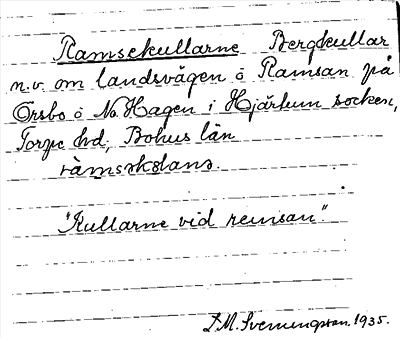 Ramsekullarne Bergkullar
n.v. om landsvägen ö Ramsan på
Orsbo ö No Hagen i Hjärtum socken,
Torpe hd, Bohus län
ràmsəkəlanə.
"Kullarne vid remsan".
L.M. Svenungsson. 1935.